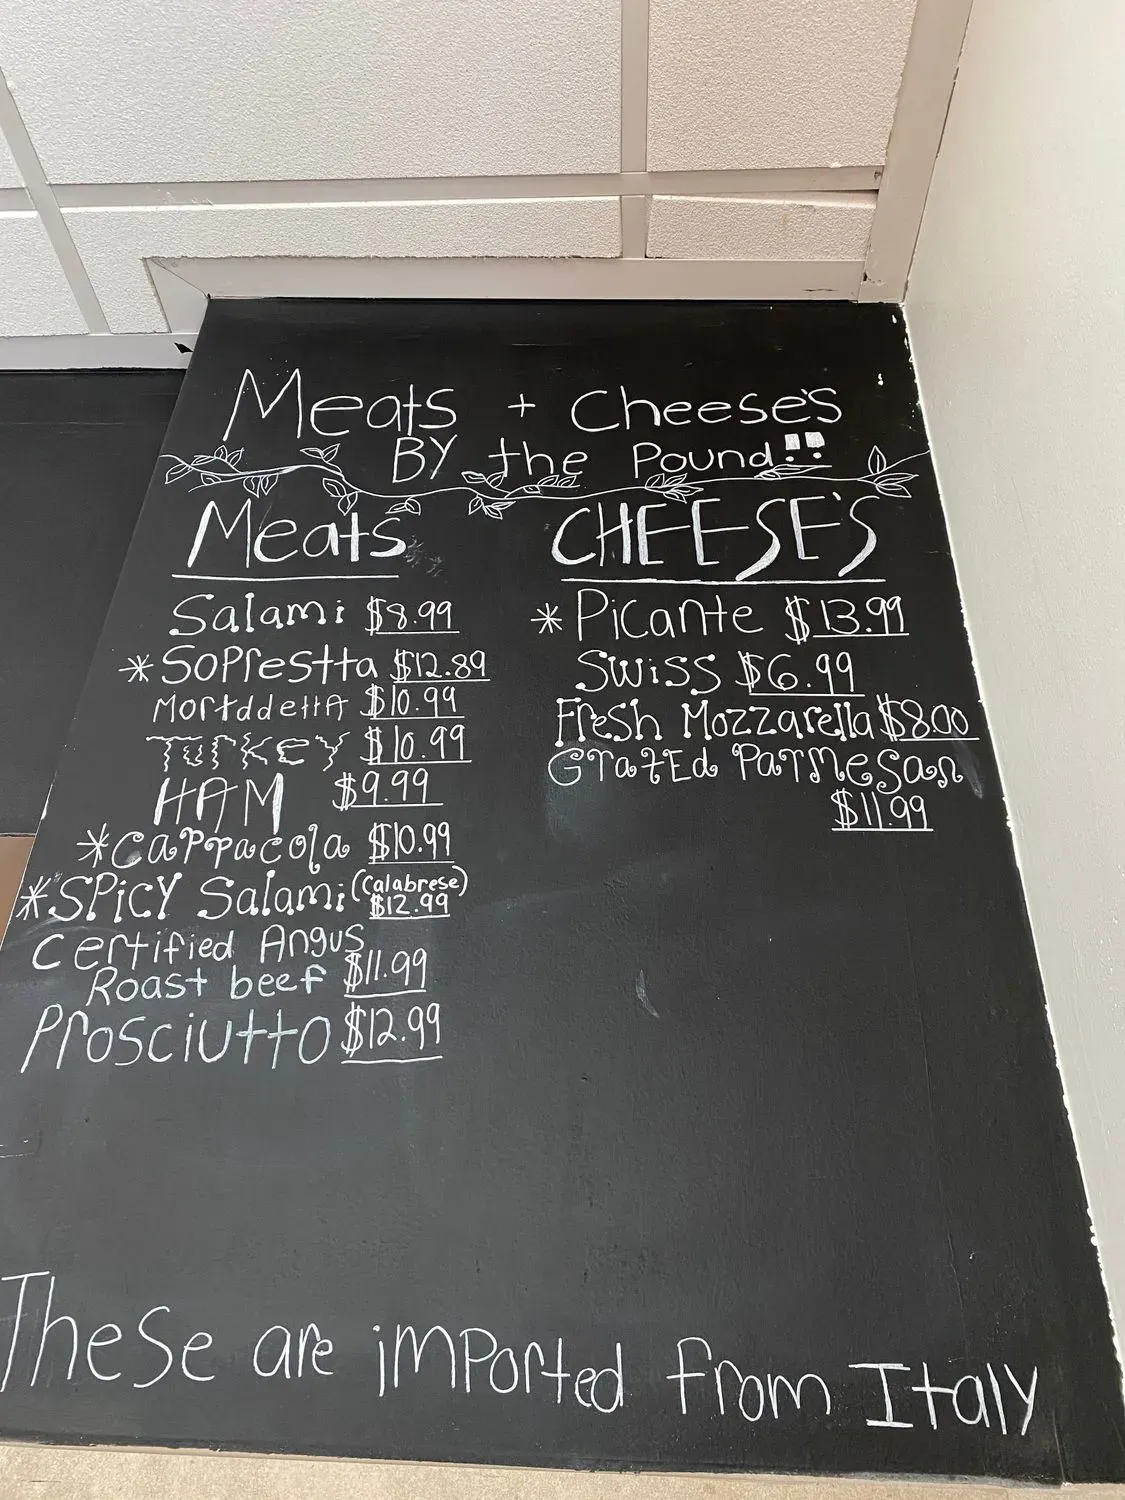 Meats + Cheese's
BY the Pound!!
Meats
Salami $8.99
*Soprestta $12.89
Mortddella $10.99
Turkey $10.99
HAM $9.99
*Cappacola $10.99
*SPicY Salami (Calabrese) $12.99
Certified Angus
Roast beef $11.99
Prosciutto $12.99
CHEESE'S
*Picante $13.99
Swiss $6.99
Fresh Mozzarella $8.00
GratEd ParMesan
$11.99
These are imported from Italy